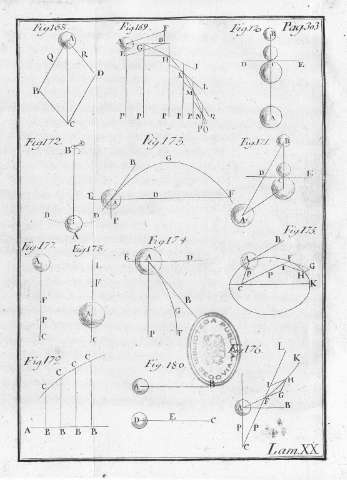 Fig 168
Fig 169
Fig 170
Pag 303
A
Q
R
B
D
C
F
G
H
I
K
L
M
N
P P P P P Q
B
C
D
E
A
Fig 172
Fig 173
Fig 171
B
D
A
B
G
D
F
A
P
B
D
E
A
Fig 177
Fig 178
Fig 174
Fig 175
A
F
P
C
L
F
A
C
E
A
D
B
G
P
F
B
A
F
G
P
T
H
C
K
Fig 179
Fig. 180
Fig 176
C
C
C
C
A B B B B
A
B
D
E
C
L
K
I
H
G
A
B
P
C
BIBLIOTECA PUBLICA
SEGOVIA
Lam. XX